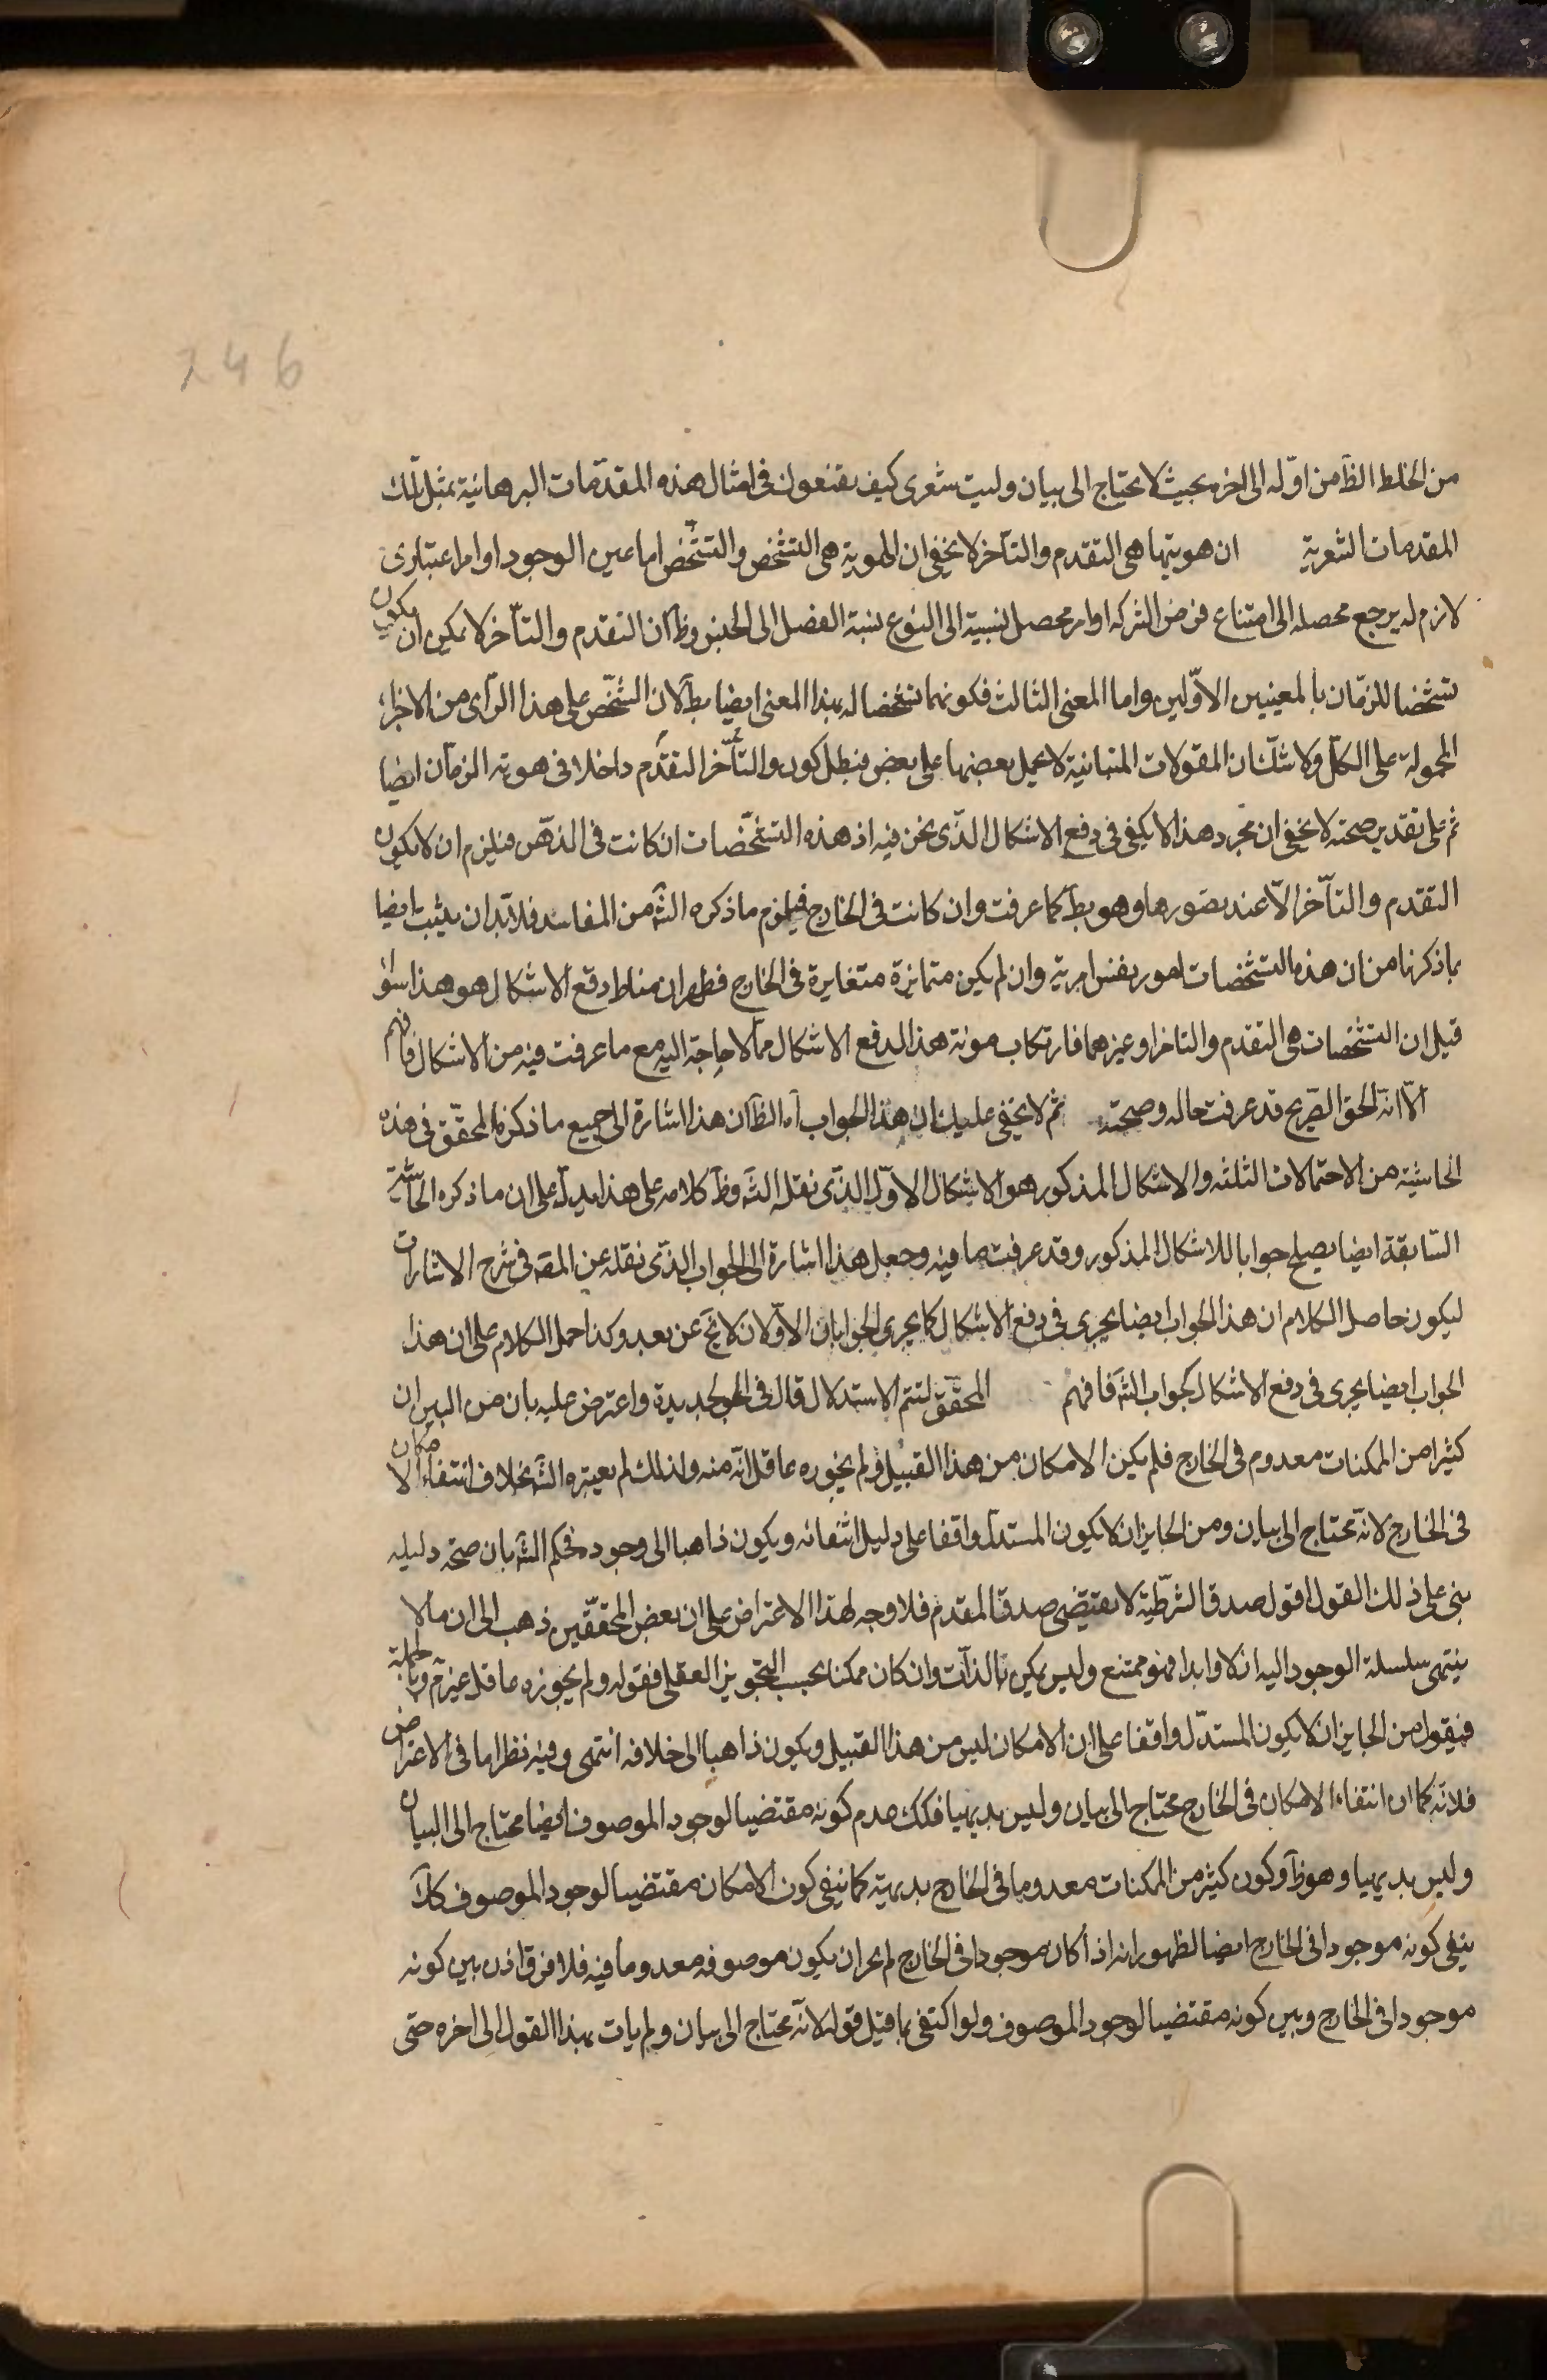 246
من الخلط الظ من اوّله الى اخره بحيث لا يحتاج الى بيان وليت شعرى كيف يقنعون فى امثال هذه المقدّمات البرهانية بمثل تلك
المقدمات الشعرية ان هويتها هى التقدم والتأخر لا يخفى ان الهوية هى التشخص والتشخّص اما عين الوجود او امر اعتبارى
لازم له يرجع محصله الى امتناع فرض الشركه او امر محصل نسبته الى النوع نسبة الفصل الى الجنس وظ ان التقدم والتأخر لا يمكن ان يكون
تشخصا للزمّان بالمعنيين الاوّلين واما المعنى الثالث فكونهما تشخصا له بهذا المعنى ايضا بط لان التشخّص على هذا الرأى من الاجزاء
المحمولة على الكلّ ولا شكّ ان المقولات المتباينة لا يحمل بعضها على بعض فبطل كون والتأخّر التقدّم داخلا فى هوية الزمان ايضا
ثم على تقدير صحته لا يخفى ان مجرد هذا لا يكفى فى دفع الاشكال الّذى نحن فيه اذ هذه التشخّصات ان كانت فى الذهن فيلزم ان لا يكون
التقدم والتأخّر الّا عند تصورها وهو بط كما عرفت وان كانت فى الخارج فيلزم ما ذكره الش من المفاسد فلا بّد ان يتثبت ايضا
بما ذكرنا من ان هذه التشخصات امور نفس امرية وان لم يكن متمايزة متغايرة فى الخارج فظهر ان مناط دفع الاشكال هو هذا سواء
قيل ان التشخصات هى التقدم والتاخر او غيرهما فارتكاب مونة هذا لدفع الاشكال مما لا حاجة اليه مع ما عرفت فيه من الاشكال فافهم
الّا انه الحق الصّريح قد عرفت حاله وصحته ثم لا يخفى عليك ان هذا الجواب آه الظ ان هذا اشارة الى جميع ما ذكره المحقّق فى هذه
الحاشية من الاحتمالات الثلثه والاشكال المذكور هو الاشكال الاوّل الّذى نقله الش وظ كلامه على هذا يدل على ان ما ذكره الحاشية
السّابقة ايضا يصلح جوابا للاشكال المذكور وقد عرفت ما فيه وجعل هذا اشارة الى الجواب الذى نقله عن المص فى شرح الاشارات
ليكون حاصل الكلام ان هذا الجواب ايضا يجرى فى دفع الاشكال كما يجرى الجوابان الاوّلان لا يخ عن بعد وكذا حمل الكلام على ان هذا
الجواب ايضا يجرى فى دفع الاشكال كجواب الش فافهم المحقّق لتتم الاستدلال قال فى الجديدة واعترض عليه بان من البين ان
كثيرا من الممكنات معدوم فى الخارج فلم يكن الامكان من هذا القبيل ولم يجوزه عاقل انّه منه ولذلك لم يعتبره الش بخلاف انتفاء الامكان
فى الخارج لانه يحتاج الى بيان ومن الجايز ان لا يكون المستدل واقفا على دليل انتفائه ويكون ذاهبا الى وجود فحكم الش بان صحة دليله
يبنى على ذلك القول اقول صدق الشرطّية لا يقتضى صدق المقدم فلا وجه لهذا الاعتراض على ان بعض المحققّين ذهب الى ان ما لا
ينتهى سلسلة الوجود اليه ازلا وابدا فهو ممتنع وليس يمكن بالذات وان كان ممكنا بحسب التجويز العقلى فقوله ولم يجوزه عاقل غير م وبالجملة
فيقول من الجايز ان لا يكون المستدّل واقفا على ان الامكان ليس من هذا القبيل ويكون ذاهبا الى خلافه انتهى وفيه نظر اما فى الاعتراض
فلانّه كما ان انتفاء الامكان فى الخارج محتاج الى بيان وليس بديهيا فكك عدم كونه مقتضيا لوجود الموصوف ايضا محتاج الى البيان
وليس بديهيا وهو ظ وكون كثير من الممكنات معدوما فى الخارج بديهية كما ينفى كون الامكان مقتضيا لوجود الموصوف كك
ينفى كونه موجودا فى الخارج ايضا لظهور انه اذا كان موجودا فى الخارج لم يجز ان يكون موصوفه معدوما فيه فلا فرق اذن بين كونه
موجودا فى الخارج وبين كونه مقتضيا لوجود الموصوف ولو اكتفى بما قيل قوله لانّه يحتاج الى بيان ولم يات بهذا القول الى اخره حتى